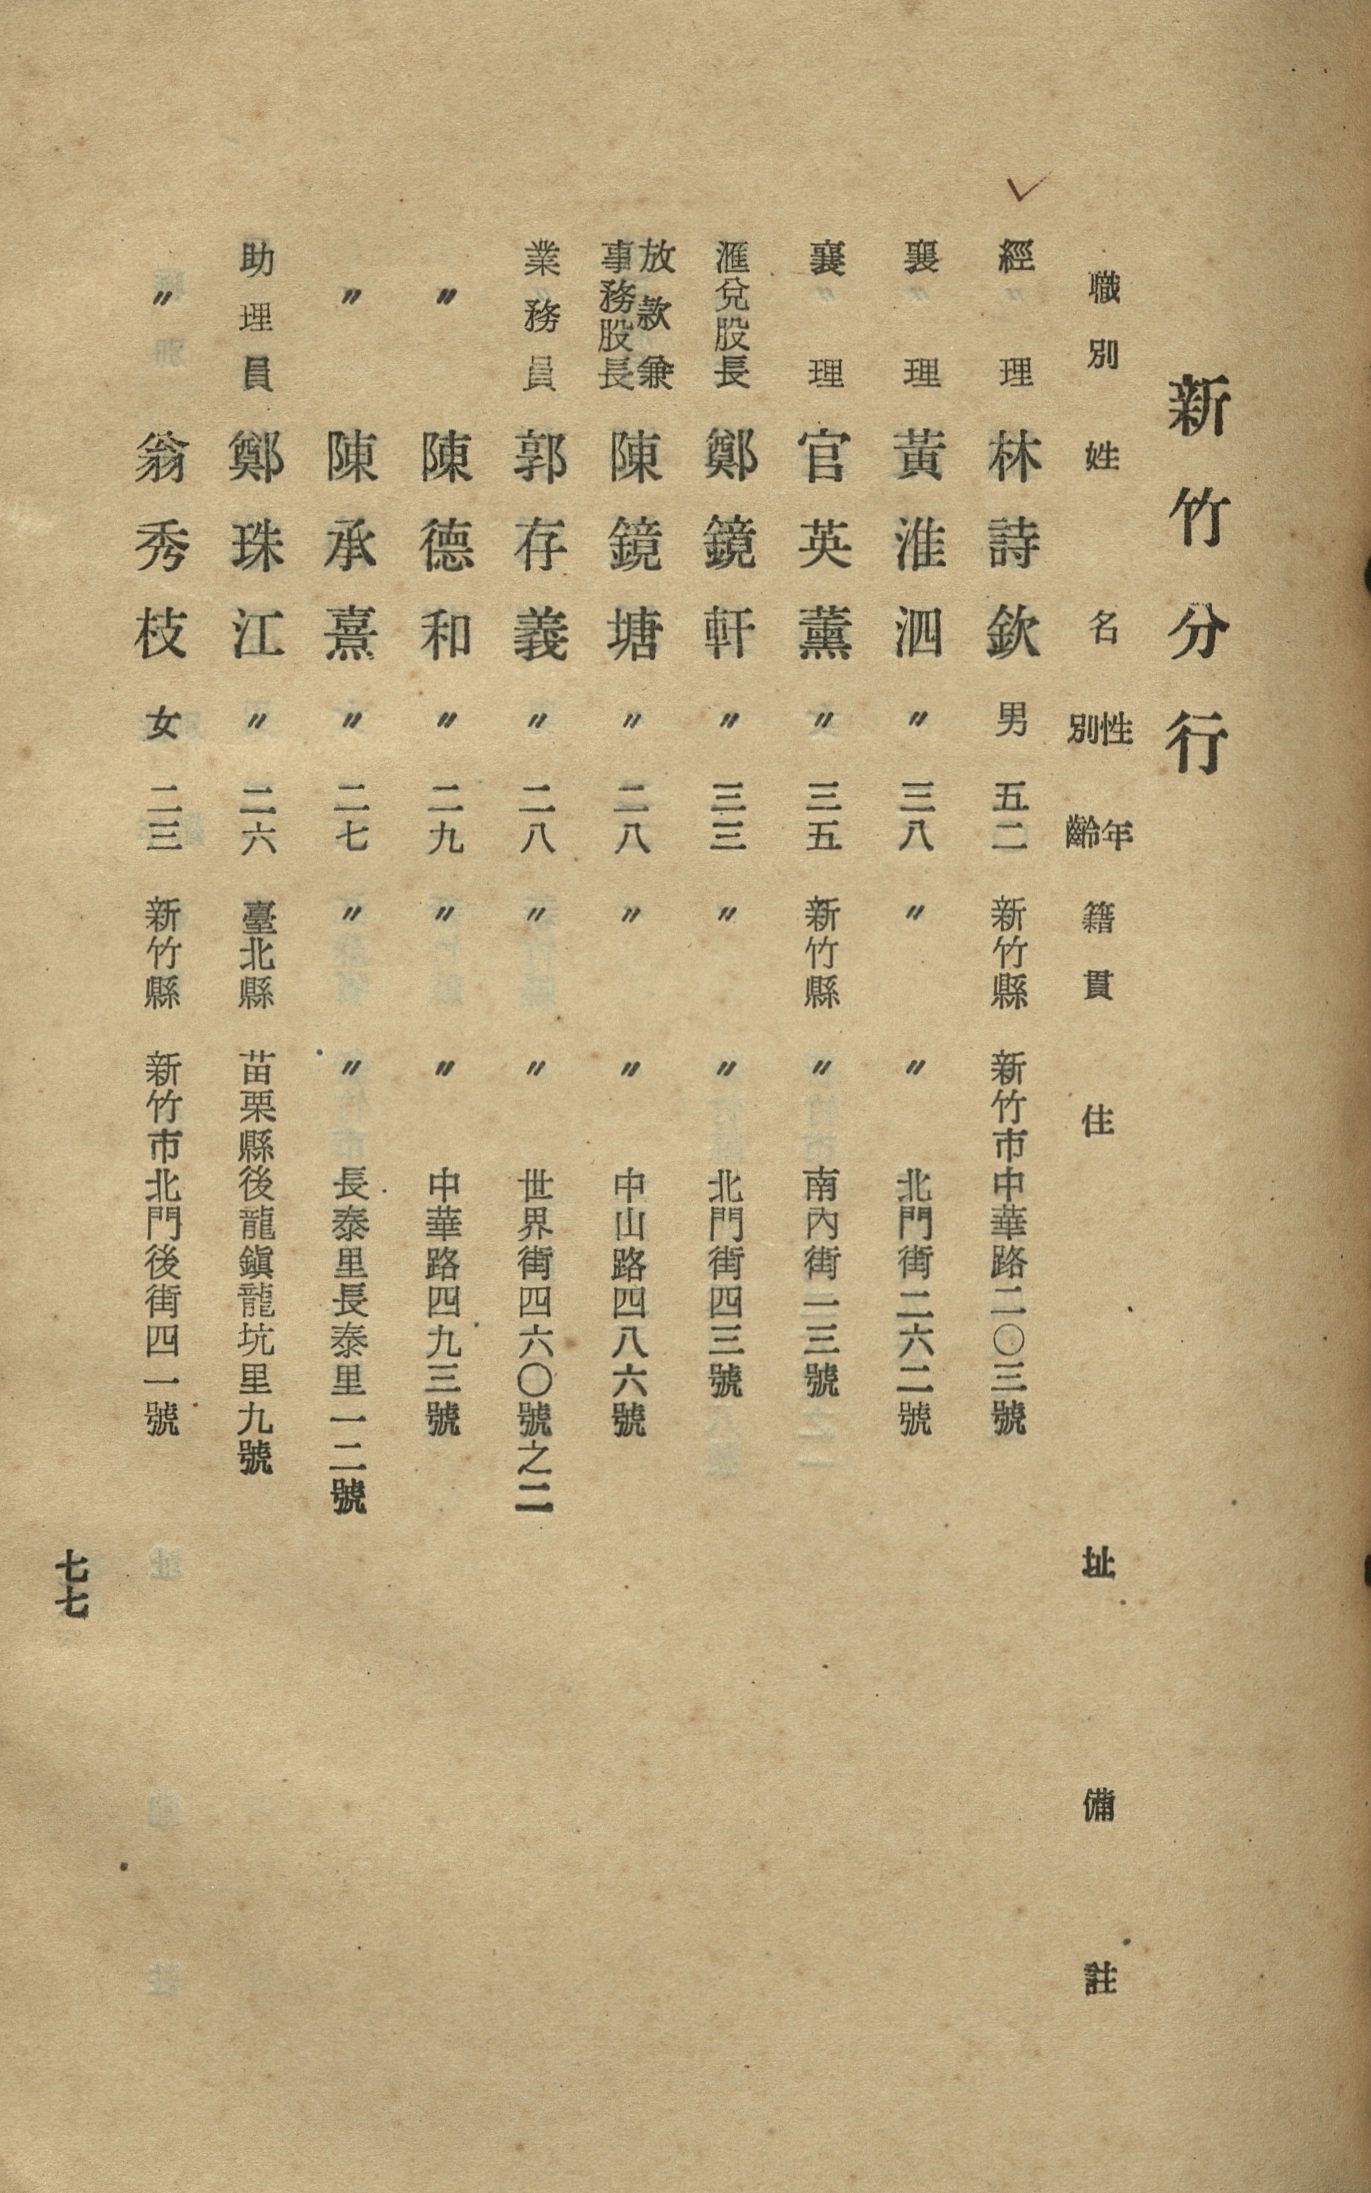 新竹分行
職別 姓名 性別 年齡 籍貫 住址 備註
經理 林詩欽 男 五二 新竹縣 新竹市中華路二〇三號
襄理 黃淮泗 〃 三八 〃 〃 北門街二六二號
襄理 官英薰 〃 三五 新竹縣 〃 南內街一三號
滙兌股長 鄭鏡軒 〃 三三 〃 〃 北門街四三號
放款兼事務股長 陳鏡塘 〃 二八 〃 〃 中山路四八六號
業務員 郭存義 〃 二八 〃 〃 世界街四六〇號之二
〃 陳德和 〃 二九 〃 〃 中華路四九三號
〃 陳承熹 〃 二七 〃 〃 長泰里長泰里一二號
助理員 鄭珠江 〃 二六 臺北縣 苗栗縣後龍鎭龍坑里九號
〃 翁秀枝 女 二三 新竹縣 新竹市北門後街四一號
七七